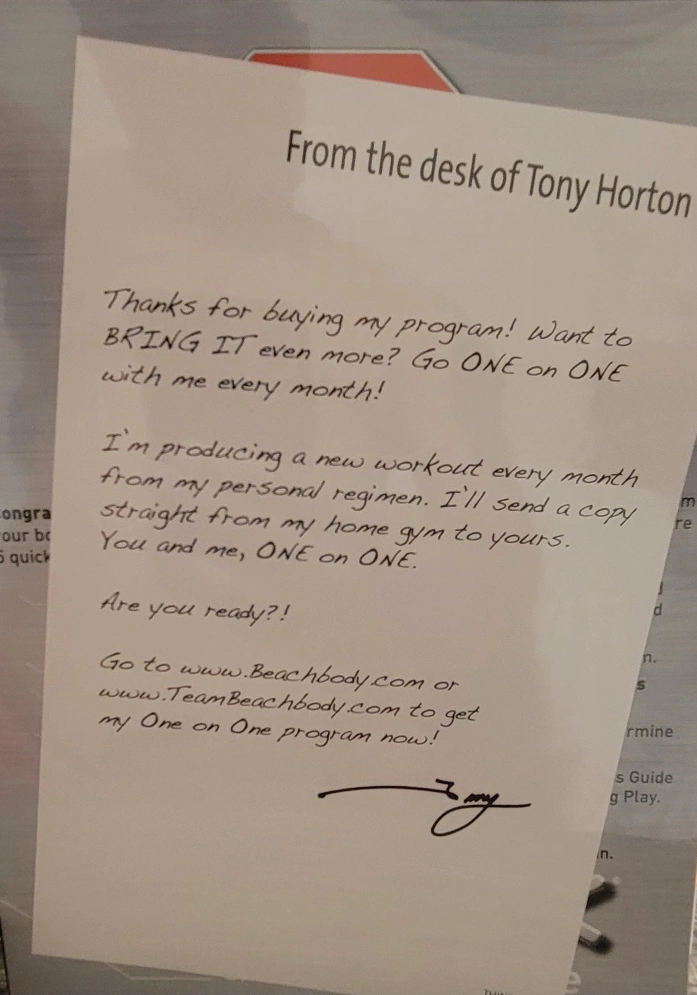 From the desk of Tony Horton
Thanks for buying my program! Want to
BRING IT even more? Go ONE on ONE
with me every month!
I'm producing a new workout every month
from my personal regimen. I'll send a copy
straight from my home gym to yours.
You and me, ONE on ONE.
Are you ready?!
Go to www.Beachbody.com or
www.TeamBeachbody.com to get
my One on One program now!
Tony
ongra
our bo
quick
m
re
d
n.
s
rmine
s Guide
g Play.
n.